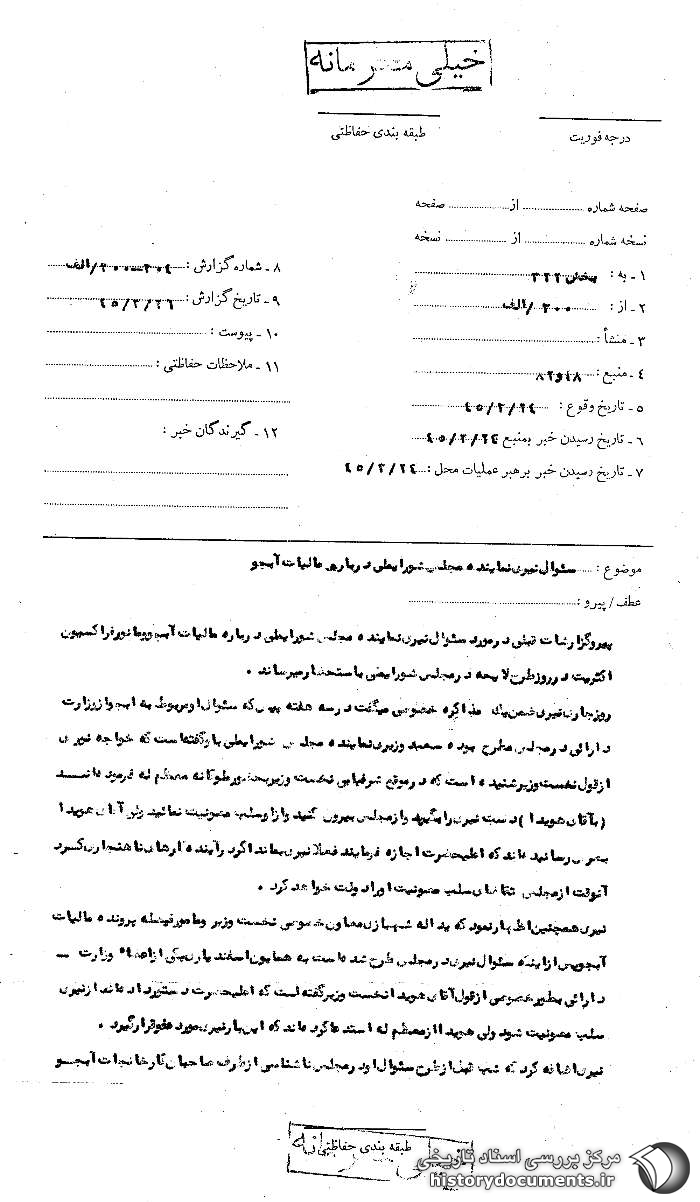 خیلی محرمانه
طبقه بندی حفاظتی
درجه فوریت
صفحه شماره از صفحه
نسخه شماره از نسخه
۱ - به : بخش ۳۲۲
۲ - از : ۲۰۰ /الف
۳ - منشأ :
۴ - منبع :
۵ - تاریخ وقوع : ۴۵/۲/۲۴
۶ - تاریخ رسیدن خبر بمنبع ۴۵/۲/۲۴
۷ - تاریخ رسیدن خبر برهبر عملیات محل : ۴۵/۲/۲۴
۸ - شماره گزارش : /الف
۹ - تاریخ گزارش : ۴۵/۲/۲۶
۱۰ - پیوست :
۱۱ - ملاحظات حفاظتی :
۱۲ - گیرندگان خبر :
موضوع : سئوال نیری نماینده مجلس شورایملی درباره مالیات آبجو
عطف / پیرو :
پیرو گزارشات قبلی در مورد سئوال نیری نماینده مجلس شورایملی درباره مالیات آبجو و مانور فراکسیون
اکثریت در روز طرح لایحه در مجلس شورایملی باستحضار میرساند .
روز جاری نیری ضمن یک مذاکره خصوصی میگفت در سه هفته پیش که سئوال او مربوط به آبجو از وزارت
دارائی در مجلس مطرح بوده سعید وزیری نماینده مجلس شورایملی باو گفته است که خواجه نوری
از قول نخست وزیر شنیده است که در موقع شرفیابی نخست وزیر بحضور ملوکانه معظم له فرموده‌اند
(بآقای هویدا) دست نیری را بگیرید و از مجلس بیرون کنید و از او سلب مصونیت نمائید ولی آقای هویدا
بعرض رسانیده‌اند که اعلیحضرت اجازه فرمایند فعلا نیری بماند اگر در آینده کارهای ناهنجاری کرد
آنوقت از مجلس تقاضای سلب مصونیت او را دولت خواهد کرد .
نیری همچنین اظهار نمود که یداله شهبازی معاون خصوصی نخست وزیر و مامور فیصله پرونده مالیات
آبجو پس از اینکه سئوال نیری در مجلس طرح شده است به همایون اسفندیاری یکی از اعضاء وزارت
دارائی بطور خصوصی از قول آقای هویدا نخست وزیر گفته است که اعلیحضرت دستور داده‌اند از نیری
سلب مصونیت شود ولی هویدا از معظم له استدعا کرده‌اند که این بار نیری مورد عفو قرار گیرد .
نیری اضافه کرد که شب قبل از طرح سئوال او در مجلس ناشناسی از طرف صاحبان کارخانجات آبجو
طبقه بندی حفاظتی
مرکز بررسی اسناد تاریخی
historydocuments.ir